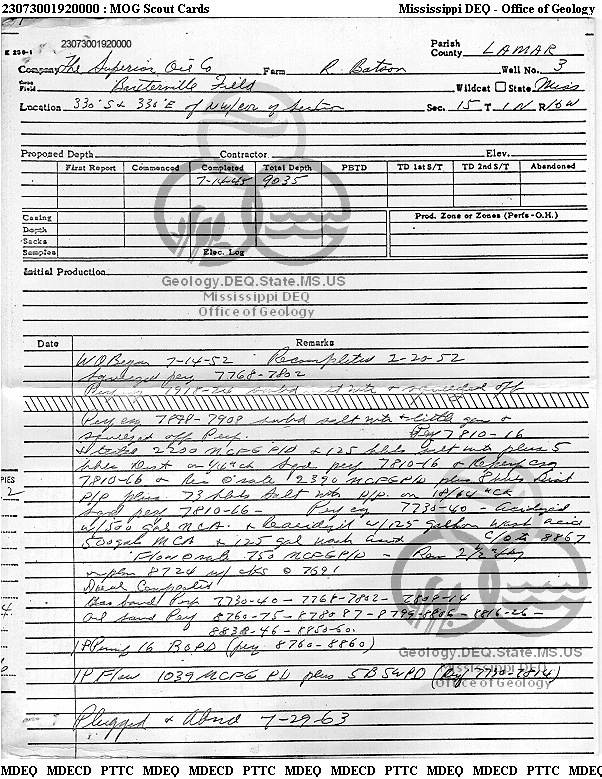 23073001920000 : MOG Scout Cards Mississippi DEQ - Office of Geology
23073001920000
K 236-1
Parish
County LAMAR
Company The Superior Oil Co Farm R. Batson Well No. 3
Field Baxterville Field Wildcat State Miss
Location 330' S & 330' E of NW/cor of Section Sec. 15 T 1N R 16W
Proposed Depth Contractor Elev.
First Report Commenced Completed Total Depth PBTD TD 1st S/T TD 2nd S/T Abandoned
7-14-45 9035
Casing Prod. Zone or Zones (Perfs - O.H.)
Depth
Sacks
Samples Elec. Log
Initial Production
Geology.DEQ.State.MS.US
Mississippi DEQ
Office of Geology
Date Remarks
WO Began 7-14-52 Recompleted 2-20-52
Squeezed perf 7768-7802
squeezed off
Perf csg 7898-7908 swbd salt wtr & little gas &
squeezed off Perf. Perf 7810-16
2200 MCFGPD & 125 bbls salt wtr plus 5
bbls Dist on ck Sqd perf 7810-16 & Reperf csg
7810-16 & 2390 MCFGPD plus 8 bbls Dist
P/D plus 73 bbls Salt wtr P/D. on 18/64" ck
Sqd perf 7810-16 - Perf csg 7730-40 - Acidized
w/500 gal MCA. & Reacidized w/125 gallon wash acid
500 gals MCA & 125 gal wash acid C/O to 8867
Flow @ rate 750 MCFGPD - Ran 2 1/2" tbg
8724 w/ @ 7691
Dual Completed
Gas sand Perf 7730-40 - 7768-7802 - 7808-14
Oil sand Perf 8760-75 - 8780 87 - 8799-8806 - 8816-26 -
8838-46 - 8850-60.
IP Pump 16 BOPD (perf 8760-8860)
IP Flow 1039 MCFG PD plus 5 BSWPD (Perf 7730-7814)
Geology.DEQ.State.MS.US
Mississippi DEQ
Office of Geology
Plugged & Abnd 7-29-63
PIES
2
4.
MDEQ MDECD PTTC MDEQ MDECD PTTC MDEQ MDECD PTTC MDEQ MDECD PTTC MDEQ